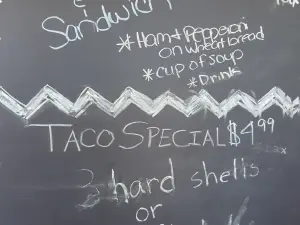 Sandwich
* Ham & Pepperoni
on wheat bread
* cup of soup
* Drink
TACO SPECIAL $4.99
3 hard shells
or